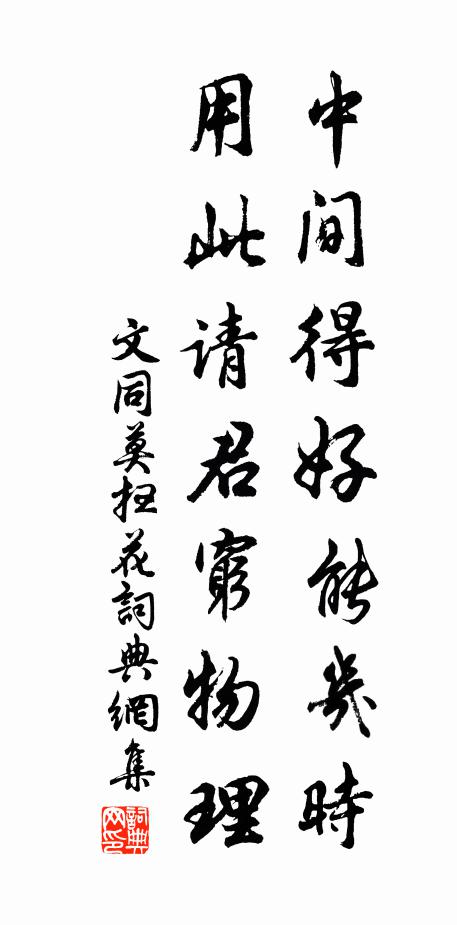 中间得好能幾時
用此请君窮物理
文同莫扫花詞典網集
詞典網印